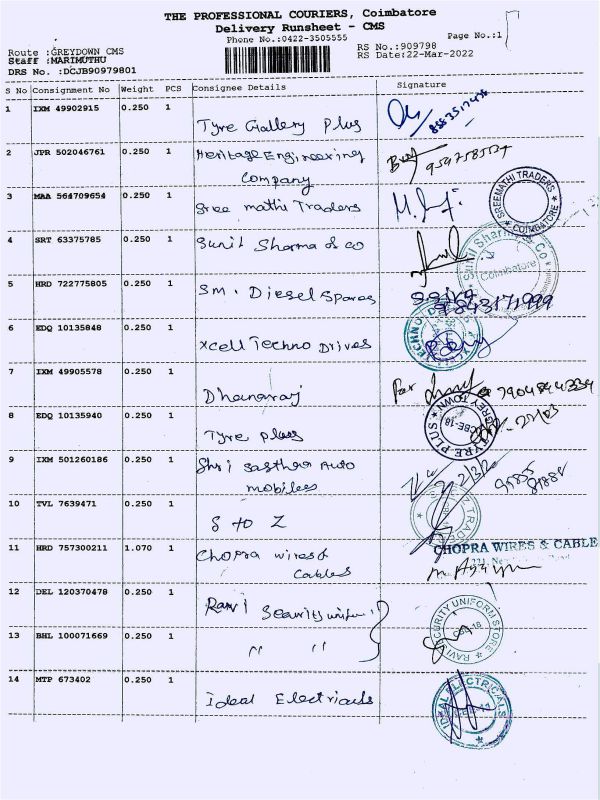 THE PROFESSIONAL COURIERS, Coimbatore
Delivery Runsheet - CMS
Phone No.:0422-3505555
Page No.:1
Route :GREYDOWN CMS
Staff :MARIMUTHU
DRS No. :DCJB90979801
RS No.:909798
RS Date:22-Mar-2022
S No Consignment No Weight PCS Consignee Details Signature
1 IXM 49902915 0.250 1
Tyre Gallery Plus
2 JPR 502046761 0.250 1 Heritage Engineering
Company
3 MAA 564709654 0.250 1
Sree mathi Traders
SREEMATHI TRADERS
COIMBATORE
4 SRT 63375785 0.250 1
Sunil Sharma & co
Sunil Sharma & Co
Coimbatore
5 HRD 722775805 0.250 1
Sm. Diesel Spares
6 EDQ 10135848 0.250 1
xcell Techno Drives
7 IXM 49905578 0.250 1
Dhanaraj
For
8 EDQ 10135940 0.250 1
Tyre plus
TYRE PLUS
GREY TOWN
CBE-18
9 IXM 501260186 0.250 1 Shri Sasthaa Auto
mobiles
10 TVL 7639471 0.250 1
S to Z
11 HRD 757300211 1.070 1 Chopra wires &
Cables
CHOPRA WIRES & CABLE
12 DEL 120370478 0.250 1
Ravi Security uniform
RAVI SECURITY UNIFORM STORE
13 BHL 100071669 0.250 1
" "
14 MTP 673402 0.250 1
Ideal Electricals
IDEAL ELECTRICALS